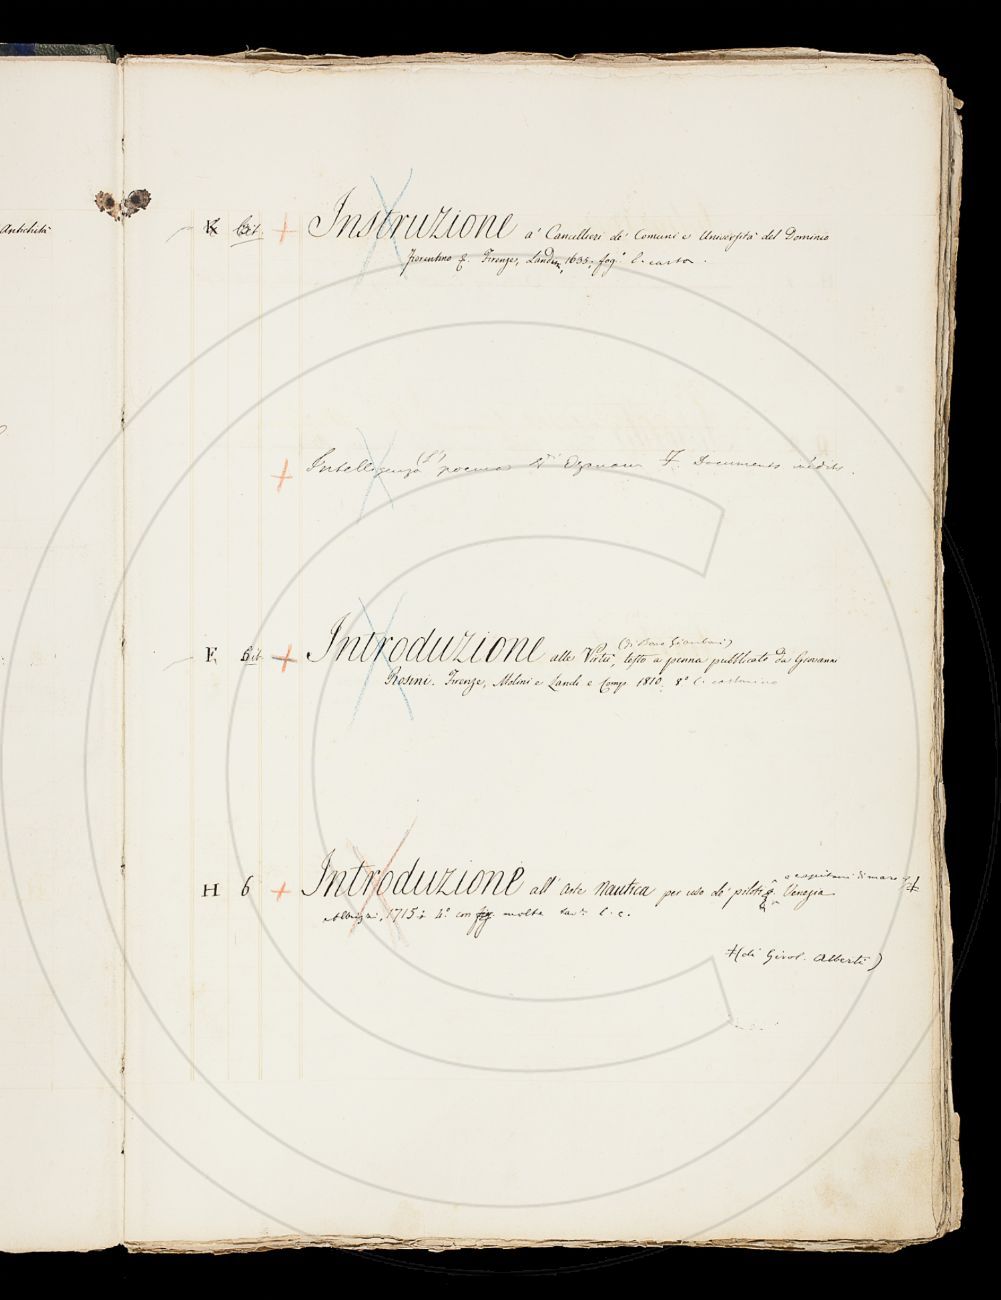 Antichità
K bis + Instruzione a' Cancellieri de' Comuni e Università del Dominio
fiorentino &. Firenze, Landini, 1635, fog.° l. carton.
+ Intelligenza (L') poema V. Ozanam F. Documents inédits.
(di Bono Giamboni)
E bis + Introduzione alle Virtù, testo a penna pubblicato da Giovanni
Rosini. Firenze, Molini e Landi e Comp. 1810. 8° l. cartoncino
e capitani di mare &
H 6 + Introduzione all' arte nautica per uso de' piloti Venezia +
Albrizzi, 1715 in 4° con fig. molte tav.e l. c.
+(di Girol. Alberti)